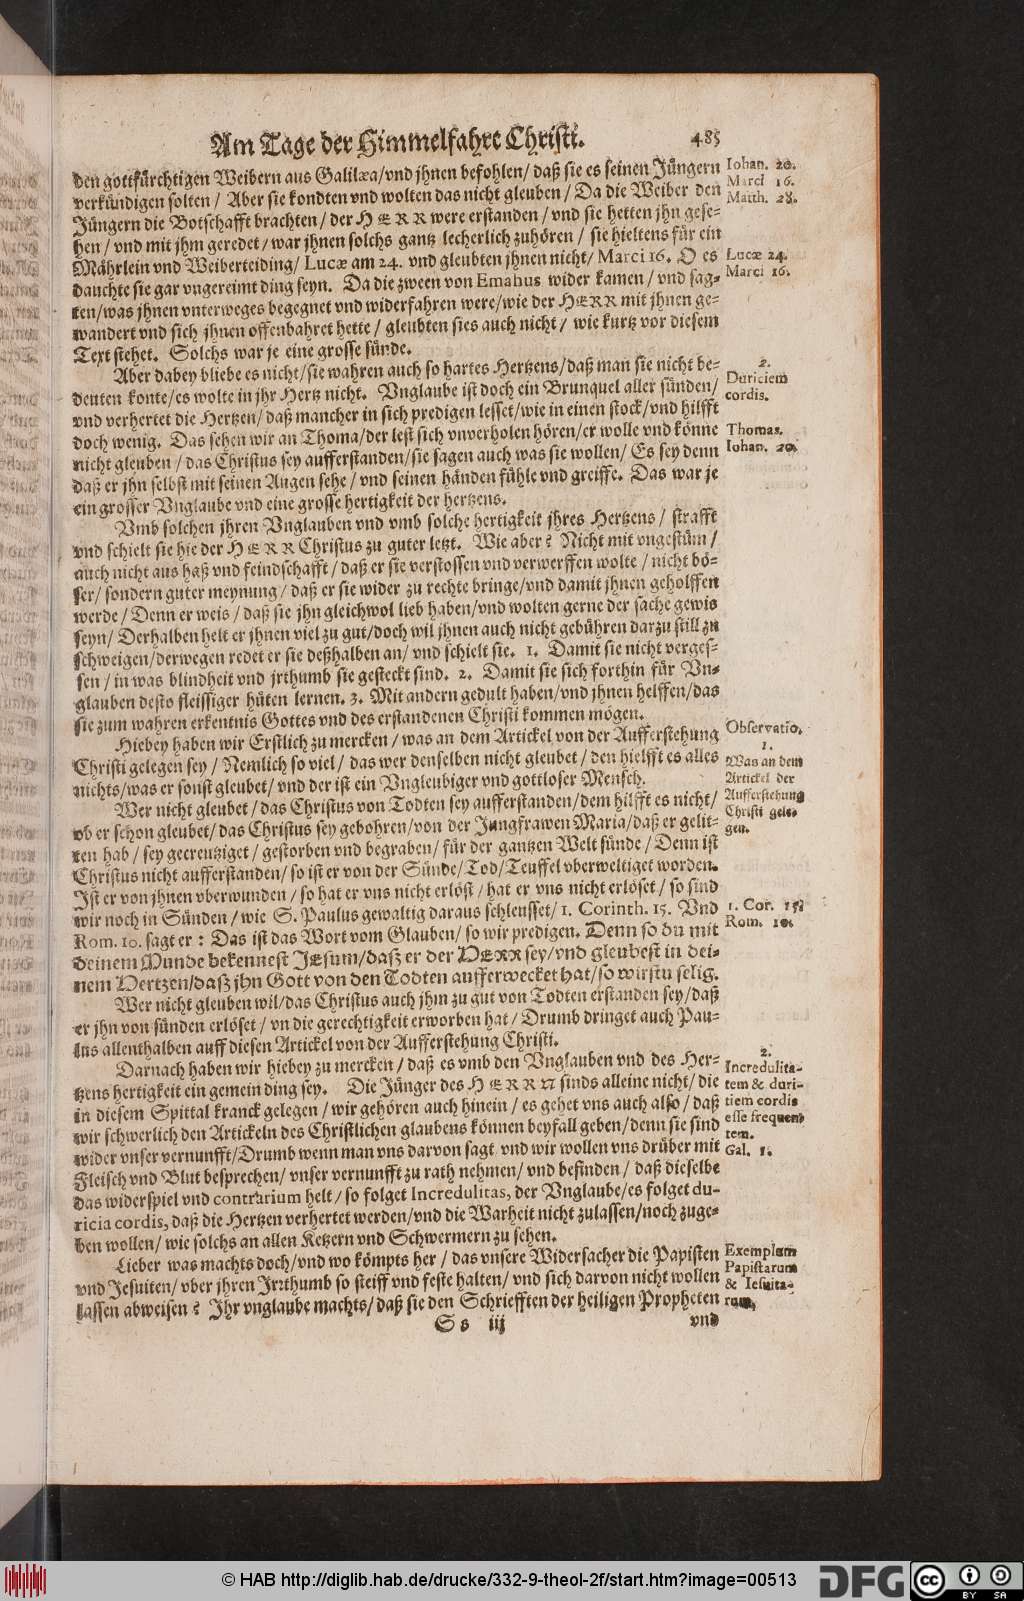 Am Tage der Himmelfahrt Christi. 485
den gottfürchtigen Weibern aus Galilæa/vnd jhnen befohlen/ daß sie es seinen Jüngern
verkündigen solten / Aber sie kondten vnd wolten das nicht gleuben / Da die Weiber den
Jüngern die Botschafft brachten / der HERR were erstanden / vnd sie hetten jhn gese-
hen / vnd mit jhm geredet / war jhnen solchs gantz lecherlich zuhören / sie hieltens für ein
Mährlein vnd Weiberteiding/ Lucæ am 24. vnd gleubten jhnen nicht/ Marci 16. O es
dauchte sie gar vngereimt ding seyn. Da die zween von Emahus wider kamen / vnd sag-
ten/was jhnen vnterweges begegnet vnd widerfahren were/wie der HERR mit jhnen ge-
wandert vnd sich jhnen offenbahret hette / gleubten sies auch nicht / wie kurtz vor diesem
Text stehet. Solchs war je eine grosse sünde.
Aber dabey bliebe es nicht/sie wahren auch so hartes Hertzens/daß man sie nicht be-
deuten konte/es wolte in jhr Hertz nicht. Vnglaube ist doch ein Brunquel aller sünden/
vnd verhertet die Hertzen/ daß mancher in sich predigen lesset/wie in einen stock/vnd hilfft
doch wenig. Das sehen wir an Thoma/der lest sich vnverholen hören/er wolle vnd könne
nicht gleuben / das Christus sey aufferstanden/sie sagen auch was sie wollen/ Es sey denn
daß er jhn selbst mit seinen Augen sehe / vnd seinen händen fühle vnd greiffe. Das war je
ein grosser Vnglaube vnd eine grosse hertigkeit der hertzens.
Vmb solchen jhren Vnglauben vnd vmb solche hertigkeit jhres Hertzens / strafft
vnd schielt sie hie der HERR Christus zu guter letzt. Wie aber? Nicht mit vngestüm /
auch nicht aus haß vnd feindschafft / daß er sie verstossen vnd verwerffen wolte / nicht bö-
ser/ sondern guter meynung / daß er sie wider zu rechte bringe/vnd damit jhnen geholffen
werde / Denn er weis / daß sie jhn gleichwol lieb haben/vnd wolten gerne der sache gewis
seyn/ Derhalben helt er jhnen viel zu gut/doch wil jhnen auch nicht gebühren darzu still zu
schweigen/derwegen redet er sie deßhalben an/ vnd schielt sie. 1. Damit sie nicht verges-
sen / in was blindheit vnd jrthumb sie gesteckt sind. 2. Damit sie sich forthin für Vn-
glauben desto fleissiger hüten lernen. 3. Mit andern gedult haben/vnd jhnen helffen/das
sie zum wahren erkentnis Gottes vnd des erstandenen Christi kommen mögen.
Hiebey haben wir Erstlich zu mercken / was an dem Artickel von der Aufferstehung
Christi gelegen sey / Nemlich so viel / das wer denselben nicht gleubet / den hielfft es alles
nichts/was er sonst gleubet/ vnd der ist ein Vngleubiger vnd gottloser Mensch.
Wer nicht gleubet / das Christus von Todten sey aufferstanden/dem hilfft es nicht/
ob er schon gleubet/das Christus sey gebohren/von der Jungfrawen Maria/daß er gelit-
ten hab / sey gecreutziget / gestorben vnd begraben/ für der gantzen Welt sünde / Denn ist
Christus nicht aufferstanden/ so ist er von der Sünde/Tod/Teuffel vberweltiget worden.
Ist er von jhnen vberwunden / so hat er vns nicht erlöst / hat er vns nicht erlöset / so sind
wir noch in Sünden / wie S. Paulus gewaltig daraus schleusset/ 1. Corinth. 15. Vnd
Rom. 10. sagt er : Das ist das Wort vom Glauben/ so wir predigen. Denn so du mit
deinem Munde bekennest JEsum/daß er der HERR sey/vnd gleubest in dei-
nem Hertzen/daß jhn Gott von den Todten aufferwecket hat/so wirstu selig.
Wer nicht gleuben wil/das Christus auch jhm zu gut von Todten erstanden sey/daß
er jhn von sünden erlöset / vn die gerechtigkeit erworben hat / Drumb dringet auch Pau-
lus allenthalben auff diesen Artickel von der Aufferstehung Christi.
Darnach haben wir hiebey zu mercken / daß es vmb den Vnglauben vnd des Her-
tzens hertigkeit ein gemein ding sey. Die Jünger des HERRN sinds alleine nicht/ die
in diesem Spittal kranck gelegen / wir gehören auch hinein / es gehet vns auch also / daß
wir schwerlich den Artickeln des Christlichen glaubens können beyfall geben/denn sie sind
wider vnser vernunfft/Drumb wenn man vns darvon sagt vnd wir wollen vns drüber mit
Fleisch vnd Blut besprechen/ vnser vernunfft zu rath nehmen/ vnd befinden / daß dieselbe
das widerspiel vnd contrarium helt / so folget Incredulitas, der Vnglaube/es folget du-
ricia cordis, daß die Hertzen verhertet werden/vnd die Warheit nicht zulassen/noch zuge-
ben wollen/ wie solchs an allen Ketzern vnd Schwermern zu sehen.
Lieber was machts doch/vnd wo kömpts her / das vnsere Widersacher die Papisten
vnd Jesuiten/ vber jhren Irrthumb so steiff vnd feste halten/ vnd sich darvon nicht wollen
lassen abweisen ? Ihr vnglaube machts/ daß sie den Schriefften der heiligen Propheten
Ss iij vnd
Iohan. 20.
Marci 16.
Matth. 28.
Lucæ 24.
Marci 16.
2.
Duriciem
cordis.
Thomas.
Iohan. 20.
Observatio.
1.
Was an dem
Artickel der
Aufferstehung
Christi gele-
gen.
1. Cor. 15.
Rom. 10.
2.
Incredulita-
tem & duri-
tiem cordis
esse frequen
tem.
Gal. 1.
Exemplum
Papistarum
& Iesuita-
rum.
© HAB http://diglib.hab.de/drucke/332-9-theol-2f/start.htm?image=00513
DFG
cc
BY SA